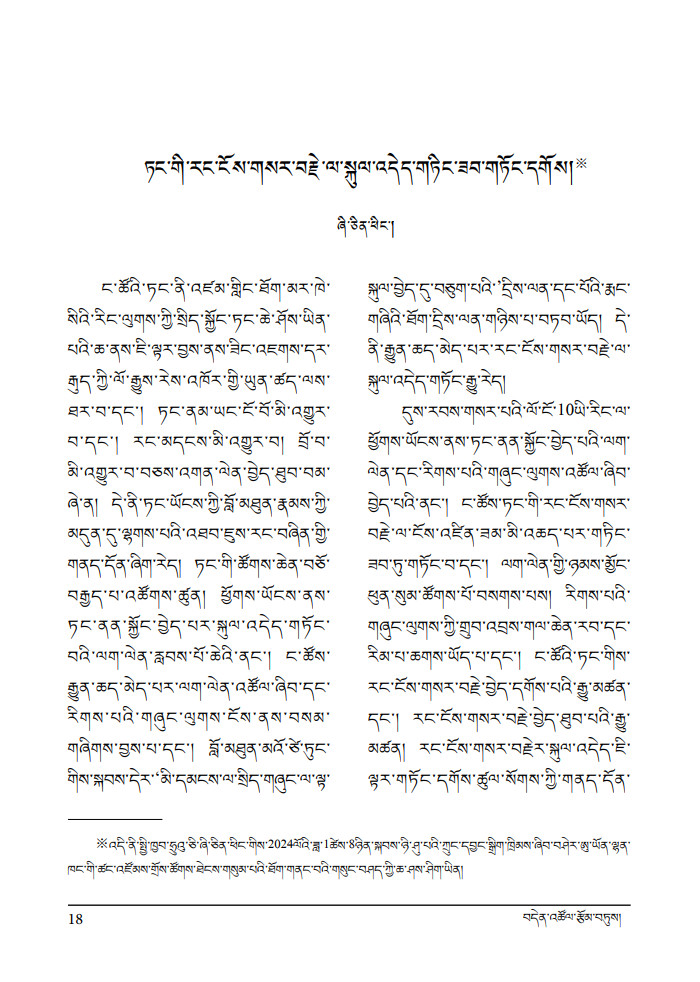 ཏང་གི་རང་ངོས་གསར་བརྗེ་ལ་སྐུལ་འདེད་གཏིང་ཟབ་གཏོང་དགོས།※
ཞི་ཅིན་ཕིང་།
ང་ཚོའི་ཏང་ནི་འཛམ་གླིང་ཐོག་མར་ཁེ་
སིའི་རིང་ལུགས་ཀྱི་སྲིད་སྐྱོང་ཏང་ཆེ་ཤོས་ཡིན་
པའི་ཆ་ནས་ཇི་ལྟར་བྱས་ནས་ཟིང་འཇགས་དར་
རྒུད་ཀྱི་ལོ་རྒྱུས་རེས་འཁོར་གྱི་ཡུན་ཚད་ལས་
ཐར་བ་དང་། ཏང་ནམ་ཡང་ངོ་བོ་མི་འགྱུར་
བ་དང་། རང་མདངས་མི་འགྱུར་བ། བྲོ་བ་
མི་འགྱུར་བ་བཅས་འགན་ལེན་བྱེད་ཐུབ་བམ་
ཞེ་ན། དེ་ནི་ཏང་ཡོངས་ཀྱི་བློ་མཐུན་རྣམས་ཀྱི་
མདུན་དུ་ལྷགས་པའི་འཐབ་ཇུས་རང་བཞིན་གྱི་
གནད་དོན་ཞིག་རེད། ཏང་གི་ཚོགས་ཆེན་བཅོ་
བརྒྱད་པ་འཚོགས་ཚུན། ཕྱོགས་ཡོངས་ནས་
ཏང་ནན་སྐྱོང་བྱེད་པར་སྐུལ་འདེད་གཏོང་
བའི་ལག་ལེན་རླབས་པོ་ཆེའི་ནང་། ང་ཚོས་
རྒྱུན་ཆད་མེད་པར་ལག་ལེན་འཚོལ་ཞིབ་དང་
རིགས་པའི་གཞུང་ལུགས་ངོས་ནས་བསམ་
གཞིགས་བྱས་པ་དང་། བློ་མཐུན་མའོ་ཙེ་ཏུང་
གིས་སྐབས་དེར་‘མི་དམངས་ལ་སྲིད་གཞུང་ལ་ལྟ་
སྐུལ་བྱེད་དུ་བཅུག་པའི་’དྲིས་ལན་དང་པོའི་རྨང་
གཞིའི་ཐོག་དྲིས་ལན་གཉིས་པ་བཏབ་ཡོད། དེ་
ནི་རྒྱུན་ཆད་མེད་པར་རང་ངོས་གསར་བརྗེ་ལ་
སྐུལ་འདེད་གཏོང་རྒྱུ་རེད།
དུས་རབས་གསར་པའི་ལོ་ངོ་10ཡི་རིང་ལ་
ཕྱོགས་ཡོངས་ནས་ཏང་ནན་སྐྱོང་བྱེད་པའི་ལག་
ལེན་དང་རིགས་པའི་གཞུང་ལུགས་འཚོལ་ཞིབ་
བྱེད་པའི་ནང་། ང་ཚོས་ཏང་གི་རང་ངོས་གསར་
བརྗེ་ལ་ངོས་འཛིན་ཟམ་མི་འཆད་པར་གཏིང་
ཟབ་ཏུ་གཏོང་བ་དང་། ལག་ལེན་གྱི་ཉམས་མྱོང་
ཕུན་སུམ་ཚོགས་པོ་བསགས་པས། རིགས་པའི་
གཞུང་ལུགས་ཀྱི་གྲུབ་འབྲས་གལ་ཆེན་རབ་དང་
རིམ་པ་ཆགས་ཡོད་པ་དང་། ང་ཚོའི་ཏང་གིས་
རང་ངོས་གསར་བརྗེ་བྱེད་དགོས་པའི་རྒྱུ་མཚན་
དང་། རང་ངོས་གསར་བརྗེ་བྱེད་ཐུབ་པའི་རྒྱུ་
མཚན། རང་ངོས་གསར་བརྗེར་སྐུལ་འདེད་ཇི་
ལྟར་གཏོང་དགོས་ཚུལ་སོགས་ཀྱི་གནད་དོན་
※འདི་ནི་སྤྱི་ཁྱབ་ཧྲུའུ་ཅི་ཞི་ཅིན་ཕིང་གིས་2024ལོའི་ཟླ་1ཚེས་8ཉིན་སྐབས་ཉི་ཤུ་པའི་ཀྲུང་དབྱང་སྒྲིག་ཁྲིམས་ཞིབ་བཤེར་ཨུ་ཡོན་ལྷན་
ཁང་གི་ཚང་འཛོམས་གྲོས་ཚོགས་ཐེངས་གསུམ་པའི་ཐོག་གནང་བའི་གསུང་བཤད་ཀྱི་ཆ་ཤས་ཤིག་ཡིན།
18
བདེན་འཚོལ་རྩོམ་བཏུས།